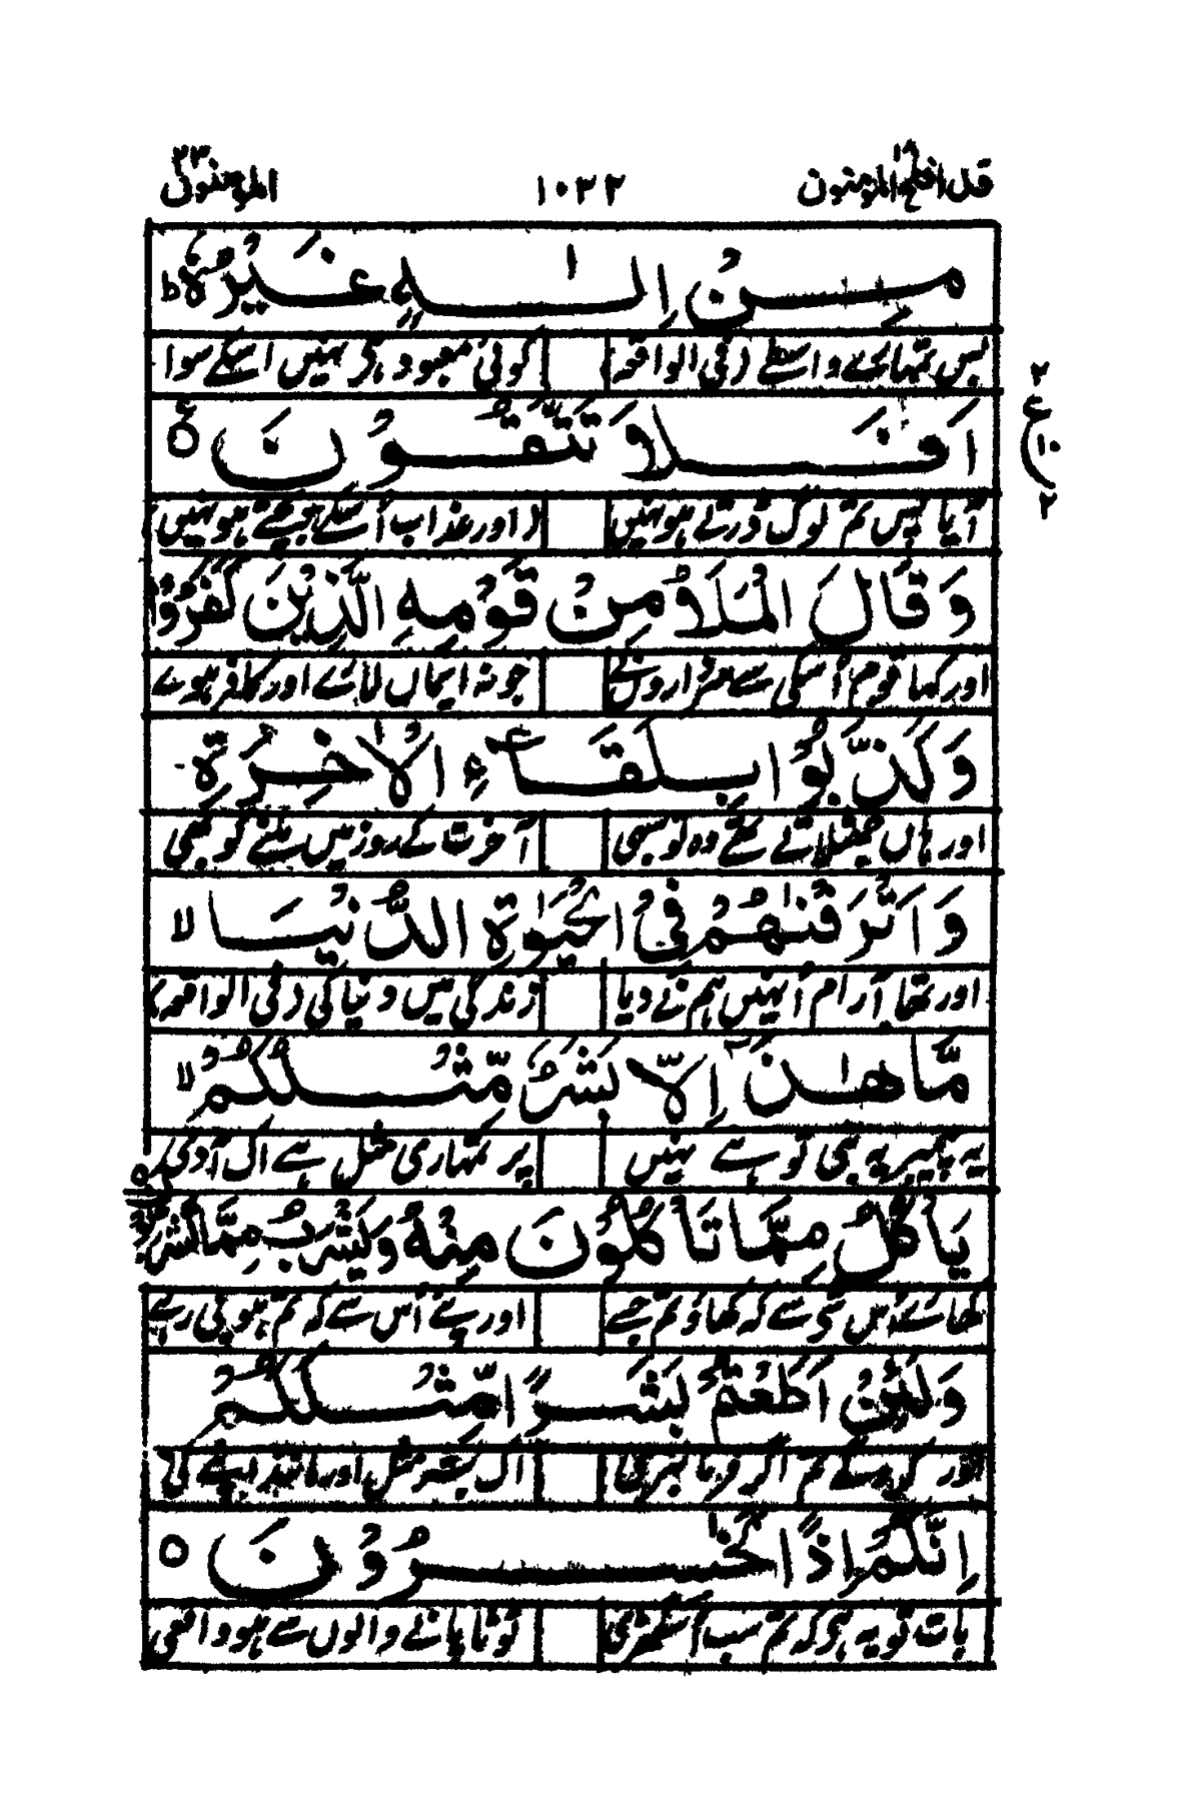 قد افلح ۱۸ المؤمنون ۱۰۳۲ المؤمنون ۲۳
مِنْ اِلٰهٍ غَيْرُهٗ ط
بس تمہارے واسطے (فی الواقعہ) کوئی معبود ہرگز نہیں اسکے سوا
اَفَلَا تَتَّقُوْنَ ○ ع
۲ ع ۱۰ ۲
آیا پس تم لوگ ڈرتے ہو نہیں (اور عذاب اُسکے بوجھتے ہو نہیں)
وَقَالَ الْمَلَاُ مِنْ قَوْمِهِ الَّذِيْنَ كَفَرُوْا
اور کہا قوم اُسکی سے سرداروں نے جو نہ ایمان لائے اور کافر ہوئے
وَكَذَّبُوْا بِلِقَآءِ الْاٰخِرَةِ
اور ہاں جھٹلاتے تھے وہ لوگ سبھی آخرت کے روز میں ملنے کو بھی
وَاَتْرَفْنٰهُمْ فِى الْحَيٰوةِ الدُّنْيَا لا
اور تھا آرام اُنہیں ہم نے دیا زندگی میں دنیا کی (فی الواقعہ)
مَا هٰذَآ اِلَّا بَشَرٌ مِّثْلُكُمْ لا
یہ پیمبر یہ بھی تو ہے نہیں پر تمہاری مثل ہے اک آدمی
يَاْكُلُ مِمَّا تَاْكُلُوْنَ مِنْهُ وَيَشْرَبُ مِمَّا تَشْرَبُوْنَ ○
کھائے اُس شی سے کہ کھاؤ تم جسے اور پئے اُس سے کہ تم ہو پی رہے
وَلَئِنْ اَطَعْتُمْ بَشَرًا مِّثْلَكُمْ
اور کروگے تم اگر فرمانبری اک بشر مثل اور مانند اپنے کی
اِنَّكُمْ اِذًا لَّخٰسِرُوْنَ ○
بات تو یہ ہی کہ تم سب ٹوٹا پانے والوں سے ہو واقعی